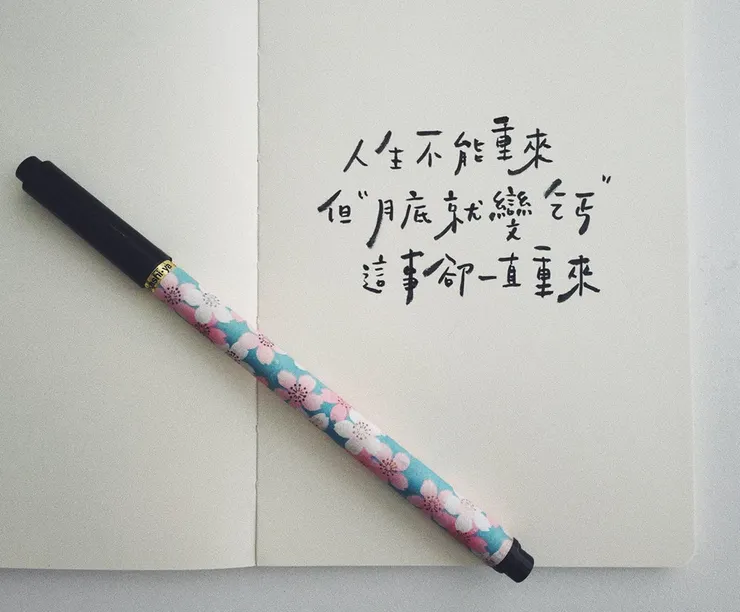 人生不能重來
但"月底就變乞丐"
這事卻一直重來